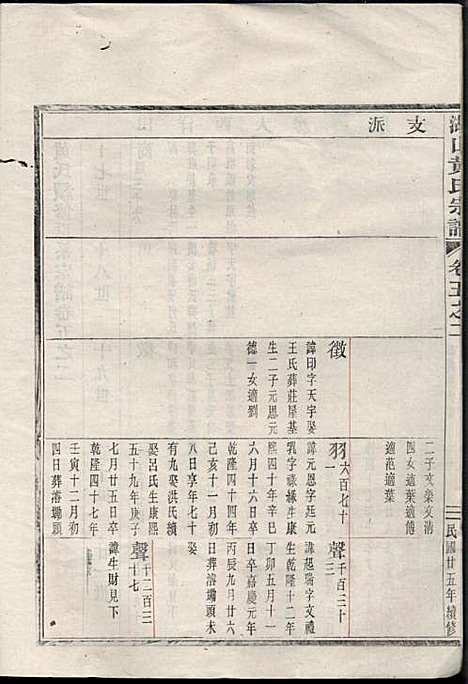 支派
黄氏宗譜
卷五之二
民國廿五年續修
二子文榮文清
四女適葉適傅
適范適葉
徵
諱印字天字娶
王氏葬莊屋基
生二子元恩元
德一女適劉
羽一 大百七十
諱元恩字廷元
乳字祿緣生康
熙四十年辛巳
六月十六日卒
乾隆四十四年
己亥十一月初
八日享年七十
有九娶洪氏續
娶呂氏生康熙
五十九年庚子
七月廿五日卒
乾隆四十七年
壬寅十二月初
四日葬濬墈頭
聲三 千百三十
諱起瑞字文禮
生乾隆十二年
丁卯五月十一
日卒嘉慶元年
丙辰九月廿六
日葬濬墈頭未
娶
聲十七 十二百三
諱生財見下